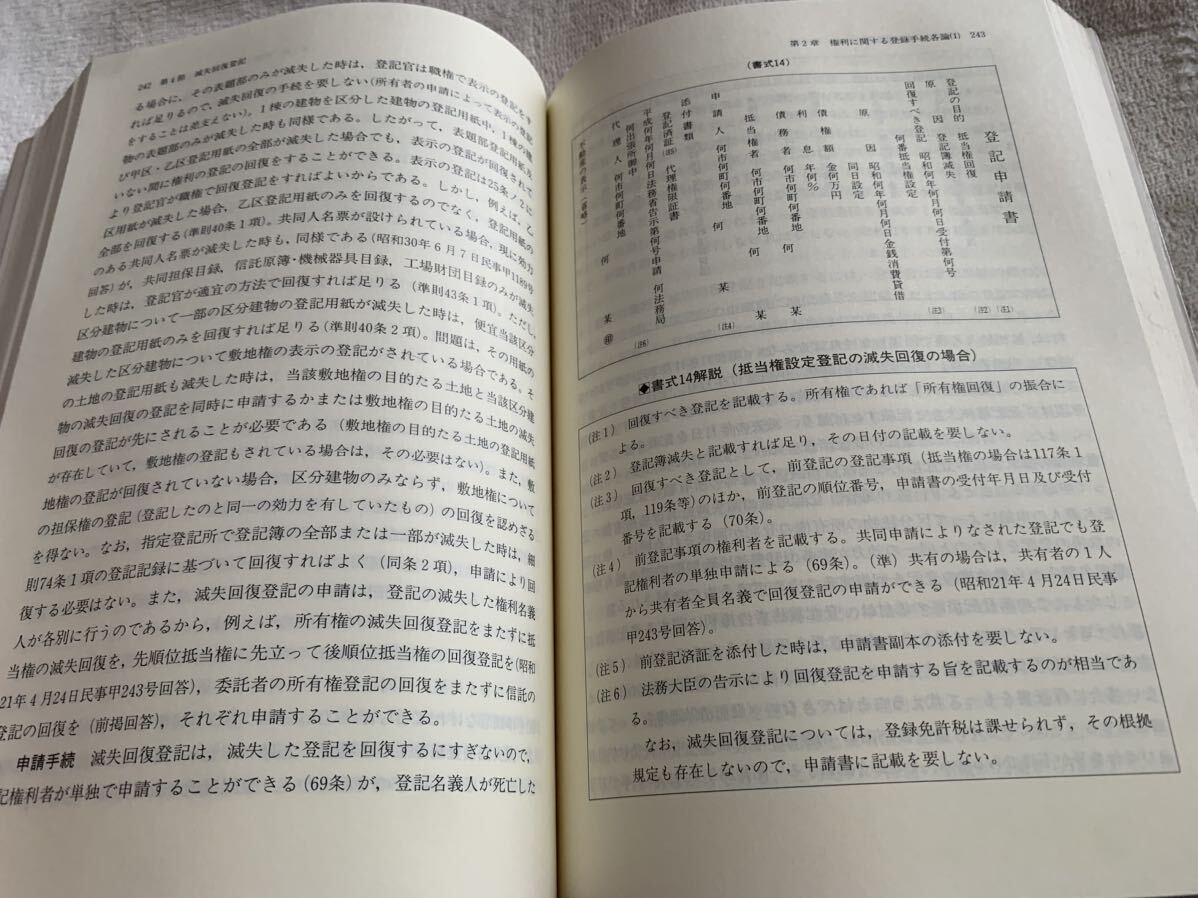 242 第4節 滅失回復登記
る場合に，その表題部のみが滅失した時は，登記官は職権で表示の登記をす
れば足りるので，滅失回復の手続を要しない(所有者の申請によって表示の登記
をすることは差支えない)。1棟の建物を区分した建物の登記用紙中，1棟の建
物の表題部のみが滅失した時も同様である。したがって，表題部登記用紙及
び甲区・乙区登記用紙の全部が滅失した場合でも，表示の登記が回復されて
いない間に権利の登記の回復をすることができる。表示の登記は25条ノ2に
より登記官が職権で回復登記をすればよいからである。しかし，例えば，乙
区用紙が滅失した場合，乙区登記用紙のみを回復するのでなく，登記用紙の
全部を回復する(準則40条1項)。共同人名票が設けられている場合，現に効力
のある共同人名票が滅失した時も，同様である(昭和30年6月7日民事甲1189号
回答)が，共同担保目録，信託原簿・機械器具目録，工場財団目録のみが滅失
した時は，登記官が適宜の方法で回復すれば足りる(準則43条1項)。ただし，
区分建物について一部の区分建物の登記用紙が滅失した時は，便宜当該区分
建物の登記用紙のみを回復すれば足りる(準則40条2項)。問題は，その用紙の
滅失した区分建物について敷地権の表示の登記がされている場合である。そ
の土地の登記用紙も滅失した時は，当該敷地権の目的たる土地と当該区分建
物の滅失回復の登記を同時に申請するかまたは敷地権の目的たる土地の滅失
回復の登記が先にされることが必要である(敷地権の目的たる土地の登記用紙
が存在していて，敷地権の登記もされている場合は，その必要はない)。また，敷
地権の登記が回復されていない場合，区分建物のみならず，敷地権について
の担保権の登記(登記したのと同一の効力を有していたもの)の回復を認めざる
を得ない。なお，指定登記所で登記簿の全部または一部が滅失した時は，細
則74条1項の登記記録に基づいて回復すればよく(同条2項)，申請により回
復する必要はない。また，滅失回復登記の申請は，登記の滅失した権利名義
人が各別に行うのであるから，例えば，所有権の滅失回復登記をまたずに抵
当権の滅失回復を，先順位抵当権に先立って後順位抵当権の回復登記を(昭和
21年4月24日民事甲243号回答)，委託者の所有権登記の回復をまたずに信託の
登記の回復を(前掲回答)，それぞれ申請することができる。
申請手続 滅失回復登記は，滅失した登記を回復するにすぎないので，
記権利者が単独で申請することができる(69条)が，登記名義人が死亡した
第2章 権利に関する登録手続各論(1) 243
(書式14)
登記申請書
登記の目的 抵当権回復 (注1)
原因 登記簿滅失 (注2)
回復すべき登記 昭和何年何月何日受付第何号 (注3)
何番抵当権設定
原因 昭和何年何月何日金銭消費貸借
同日設定
債権額 金何万円
利息 年何％
債務者 何市何町何番地 何某
抵当権者 何市何町何番地 何某
申請人 何市何町何番地 何某 (注4)
添付書類
登記済証(注5) 代理権限証書
平成何年何月何日法務省告示第何号申請 何法務局
何出張所御中 (注6)
代理人 何市何町何番地 何某 ㊞
不動産の表示(省略)
◆書式14解説(抵当権設定登記の滅失回復の場合)
(注1) 回復すべき登記を記載する。所有権であれば「所有権回復」の振合に
よる。
(注2) 登記簿滅失と記載すれば足り，その日付の記載を要しない。
(注3) 回復すべき登記として，前登記の登記事項(抵当権の場合は117条1
項，119条等)のほか，前登記の順位番号，申請書の受付年月日及び受付
番号を記載する(70条)。
(注4) 前登記事項の権利者を記載する。共同申請によりなされた登記でも登
記権利者の単独申請による(69条)。(準)共有の場合は，共有者の1人
から共有者全員名義で回復登記の申請ができる(昭和21年4月24日民事
甲243号回答)。
(注5) 前登記済証を添付した時は，申請書副本の添付を要しない。
(注6) 法務大臣の告示により回復登記を申請する旨を記載するのが相当であ
る。
なお，滅失回復登記については，登録免許税は課せられず，その根拠
規定も存在しないので，申請書に記載を要しない。